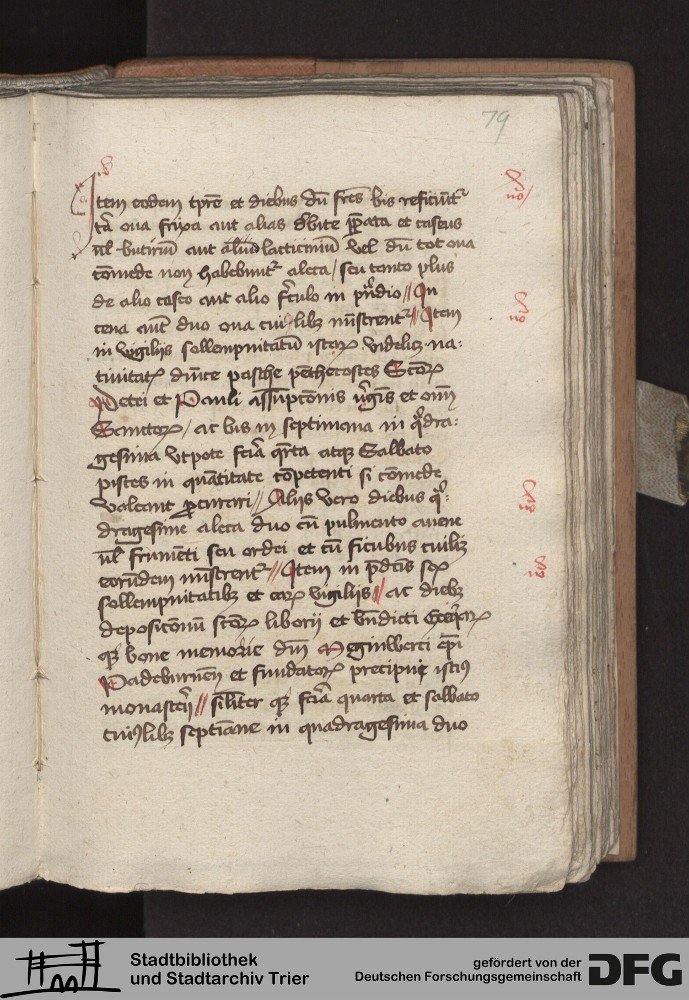 79
Item eodem tpre et diebus dū frēs bis reficiūtr
tā oua frixa aut alias dbite pparata et caseus
ul butirū aut aliud lacticiniū vel dū tot oua
cōmede non habebuntr aleca / seu tanto plus
de alio caseo aut alio frculo in prndio // In
cena aut duo oua cuilibz mīstrentr // Item
in vigiliis sollempnitatū istarz videlicz na:
tiuitatz diuīce pasche pethecostes Sctorz
Petri et Pauli assūptōnis vgīs et oīm
Sanctorz / ac bis in septimana in qdra:
gesima vtpote feīa qrta atqz Sabbato
pisces in quātitate cōpetenti si cōmede
valeant pcurari // Aliis vero diebus q:
dragesime aleca duo cū pulmento auene
ul frumēti seu ordei et cū ficubus cuilibz
eorūdem mīstrentr // Item in pdcīs sex
sollempnitatibz et earz vigiliis // ac diebz
deposicōnū sctorz liborii et bndicti
qz bone memorie dnī Meginwerci epī
Padeburnen et fundatorz precipui isti9
monasterii // siliter qz feīa quarta et sabbato
cui9libz septiane in quadragesima duo
Stadtbibliothek
und Stadtarchiv Trier
gefördert von der
Deutschen Forschungsgemeinschaft
DFG